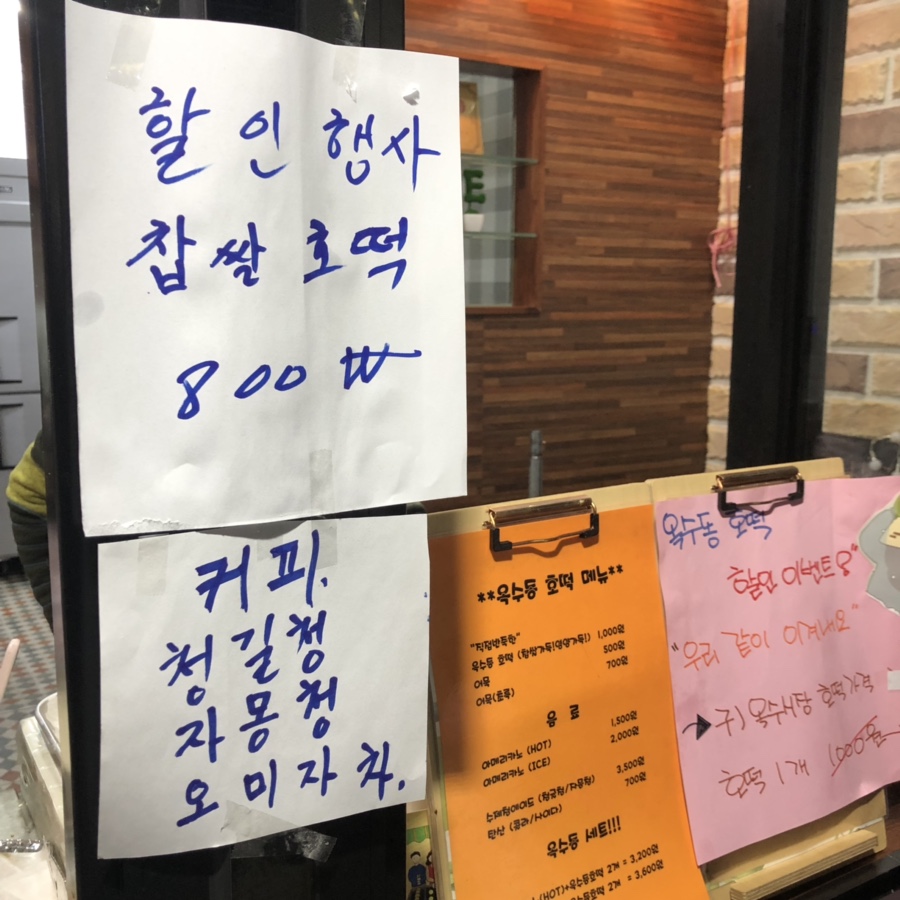 할인행사
찹쌀호떡
800₩
커피.
청길청
자몽청
오미자차.
**옥수동 호떡 메뉴**
"직접반죽한"
옥수동 호떡 (찹쌀가득!영양가득!) 1,000원
어묵 500원
어묵(호루) 700원
음료
아메리카노 (HOT) 1,500원
아메리카노 (ICE) 2,000원
수제청에이드 (청귤청/자몽청) 3,500원
탄산 (콜라/사이다) 700원
옥수동 세트!!!
(HOT)+옥수동호떡 2개 = 3,200원
호떡 2개 = 3,600원
옥수동 호떡
할인 이벤트오"
"우리 같이 이겨내요"
구) 옥수사당 호떡가격
호떡 1개 1000원
E